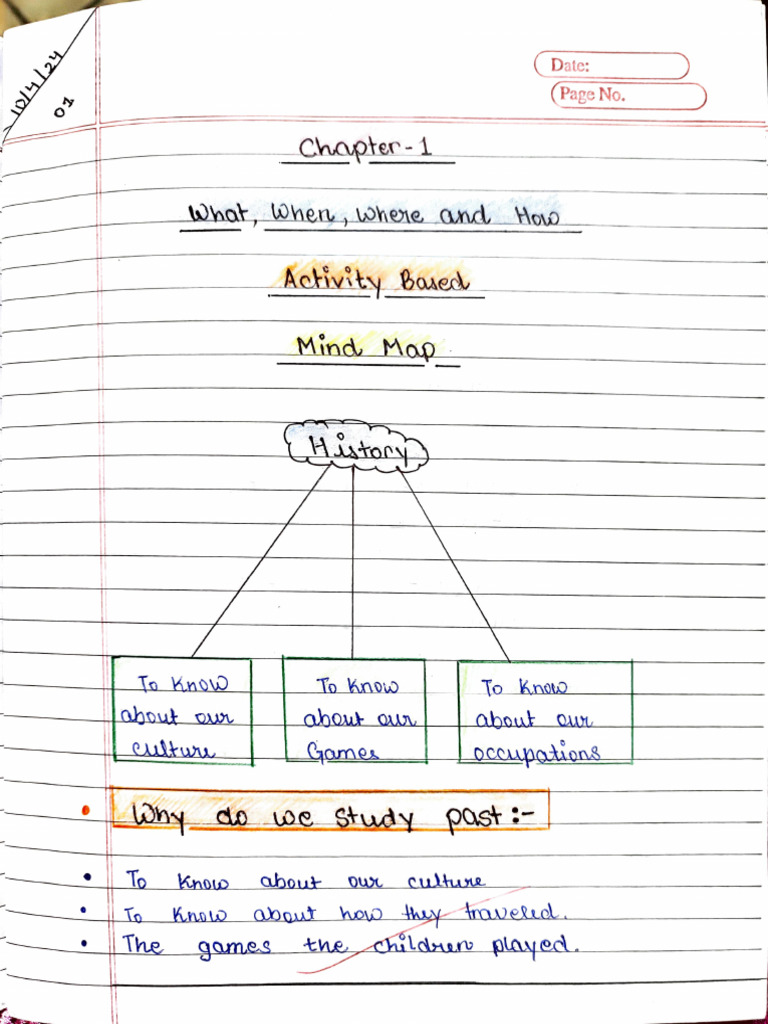 10/4/24
01
Date:
Page No.
Chapter-1
What, When, where and How
Activity Based
Mind Map
History
To Know
about our
culture
To Know
about our
Games
To Know
about our
occupations
• Why do we study past:-
• To Know about our culture
• To Know about how they traveled.
• The games the children played.